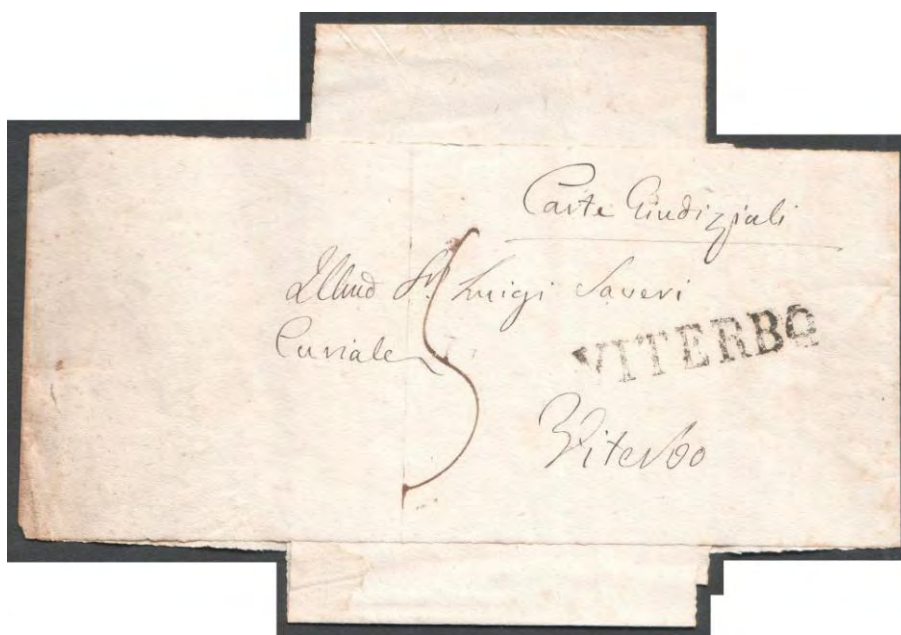 Carte Giudiziali
Illmo Sr. Luigi Saveri
Curiale
VITERBO
Viterbo
5